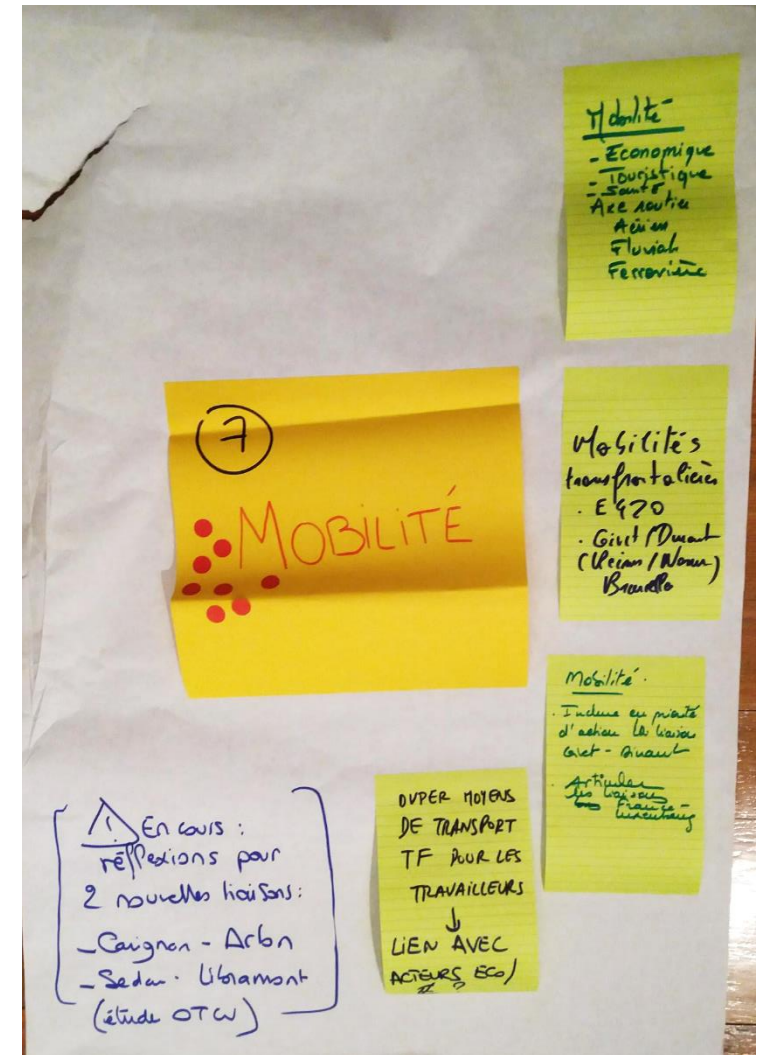 Mobilité
- Economique
- Touristique
- Santé
Axe routier
Aérien
Fluvial
Ferroviaire
7
MOBILITÉ
Mobilités
transfrontalières
. E420
. Givet / Dinant
(Reims / Namur)
Bruxelles
Mobilité.
. Inclure en priorité
d'action la liaison
Givet - Dinant
. Articuler
les liaisons
France -
Luxembourg
MOYENS
DE TRANSPORT
TF POUR LES
TRAVAILLEURS
↓
LIEN AVEC
ACTEURS ECO/
! En cours :
réflexions pour
2 nouvelles liaisons :
- Carignan - Arlon
- Sedan - Libramont
(étude OTW)